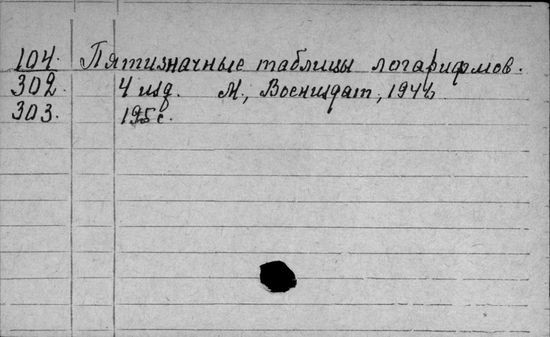 104. Пятизначные таблицы логарифмов.
302. 4 изд. М., Воениздат,
303. 195 с.